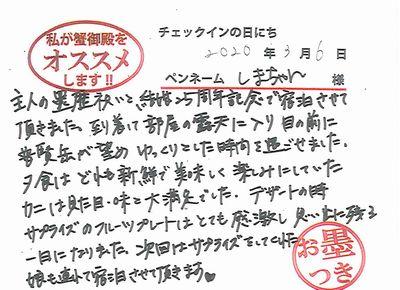 私が蟹御殿を
オススメ
します!!
チェックインの日にち
2020年3月6日
ペンネーム しまちゃん 様
主人の還暦祝いと、結婚25周年記念で宿泊させて
頂きました。到着して部屋の露天に入り目の前に
普賢岳が望め ゆっくりとした時間を過ごせました。
夕食は どれも新鮮で美味しく 楽しみにしていた
カニは見た目・味と大満足でした。デザートの時
サプライズのフルーツプレートはとても感激し 思い出に残る
一日になりました。次回はサプライズをしてくれた
娘も連れて宿泊させて頂きます♥
お墨
つき